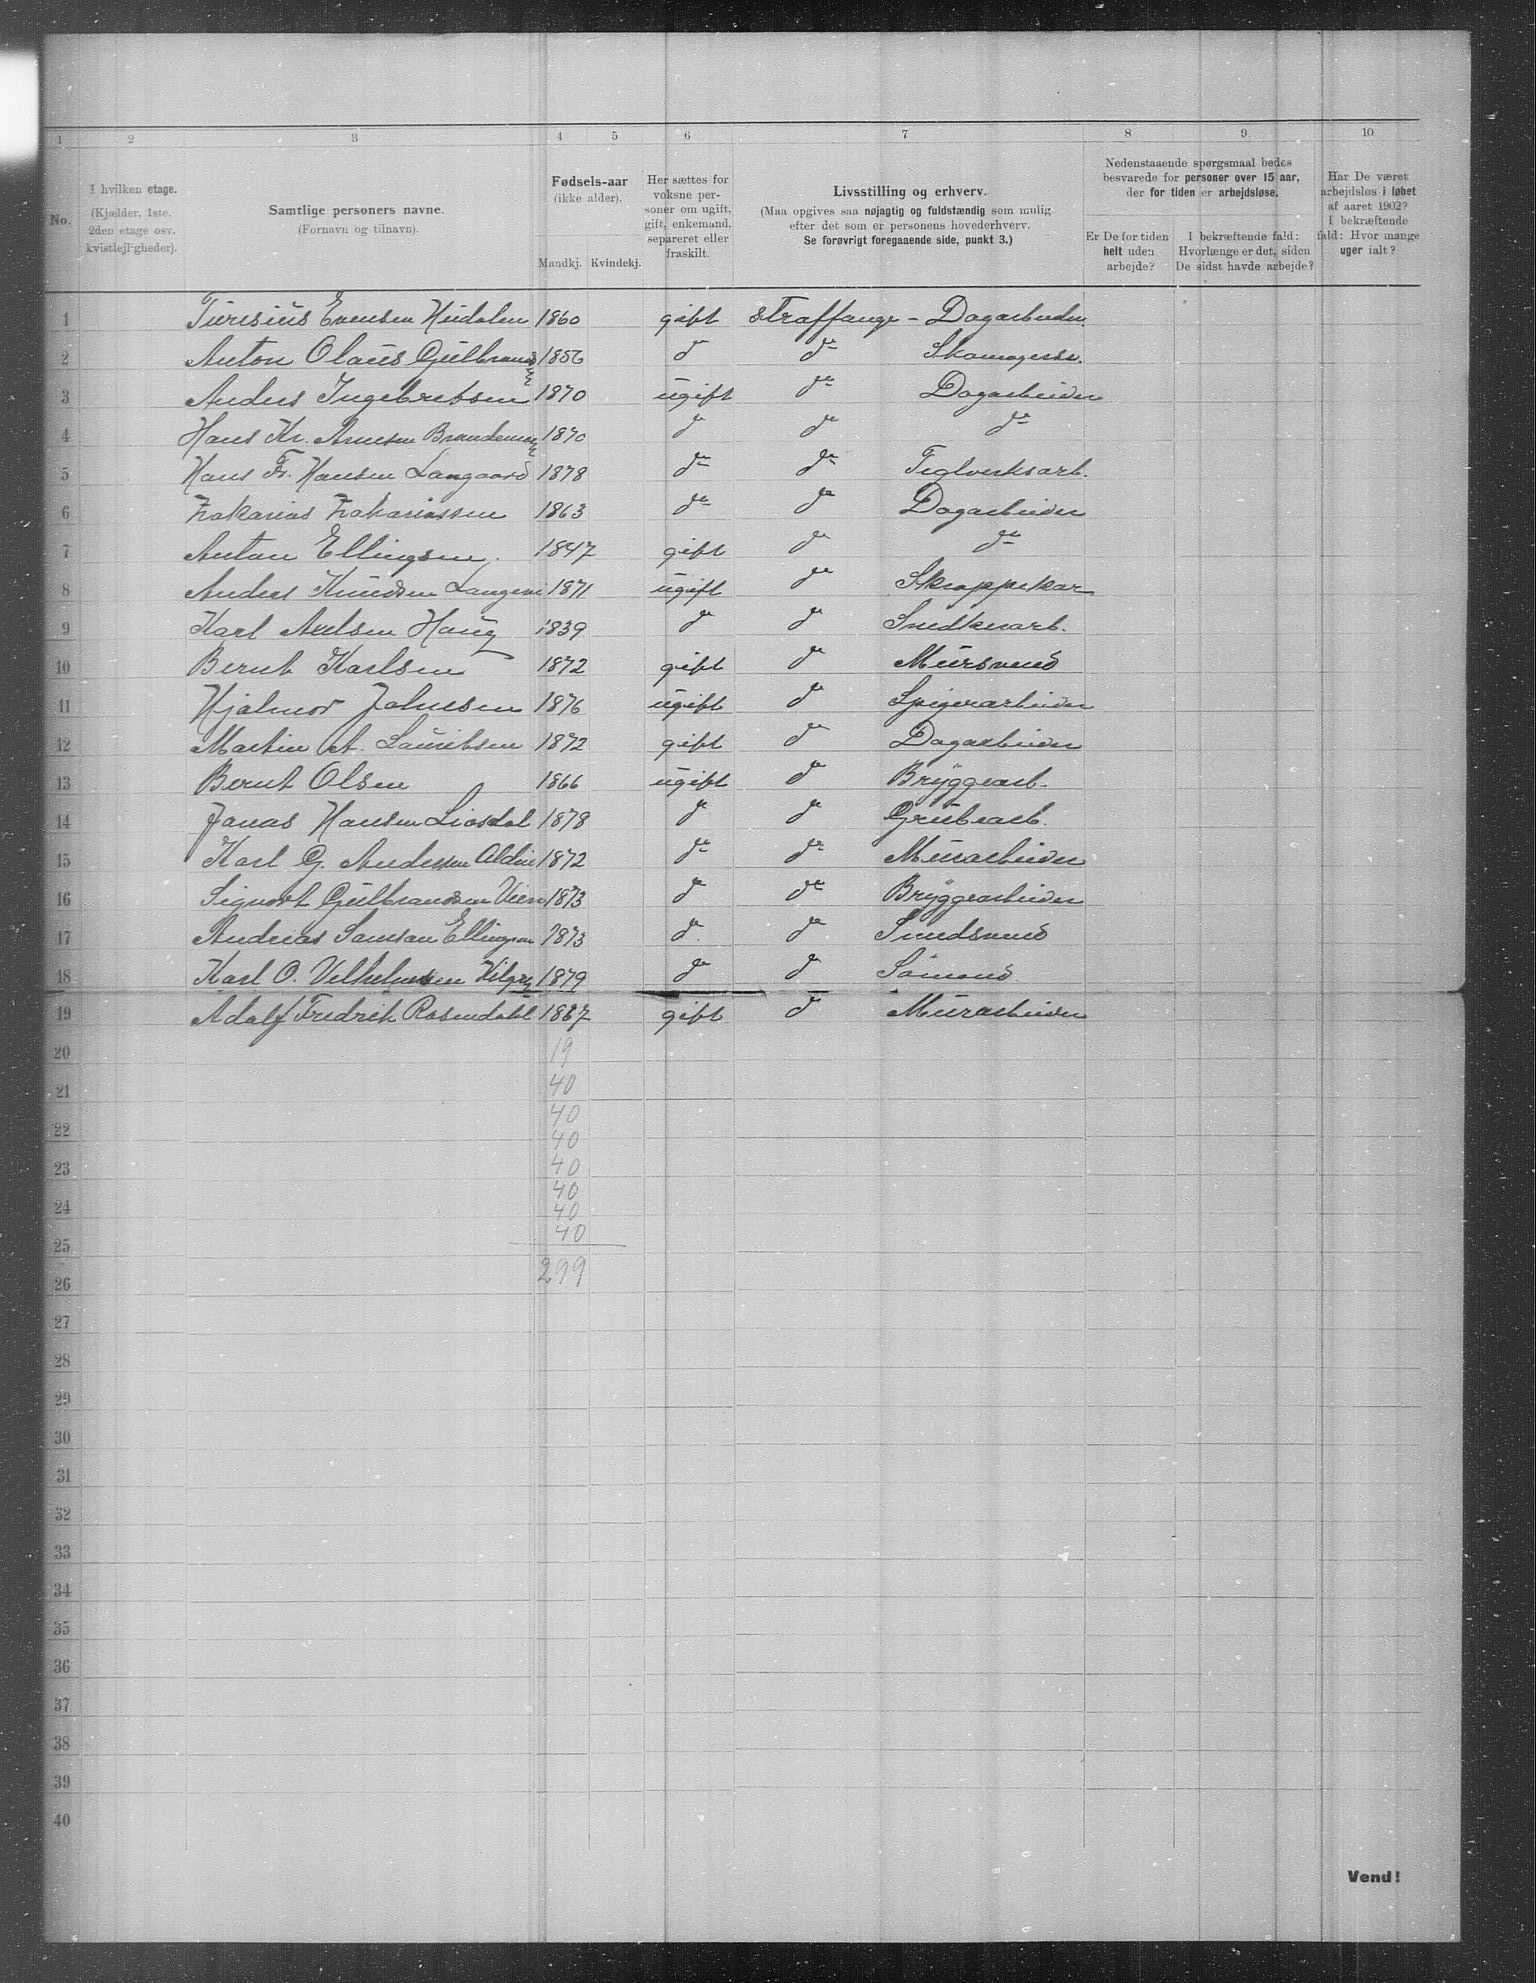 1 2 3 4 5 6 7 8 9 10
No.
I hvilken etage.
(Kjælder, 1ste,
2den etage osv.
kvistlejl-gheder).
Samtlige personers navne.
(Fornavn og tilnavn).
Fødsels-aar
(ikke alder).
Mandkj. Kvindekj.
Her sættes for
voksne per-
soner om ugift,
gift, enkemand,
separeret eller
fraskilt.
Livsstilling og erhverv.
(Maa opgives saa nøjagtig og fuldstændig som mulig
efter det som er personens hovederhverv.
Se forøvrigt foregaaende side, punkt 3.)
Nedenstaaende spørgsmaal bedes
besvarede for personer over 15 aar,
der for tiden er arbejdsløse.
Er De for tiden
helt uden
arbejde?
I bekræftende fald:
Hvorlænge er det, siden
De sidst havde arbejde?
Har De været
arbejdsløs i løbet
af aaret 1902?
I bekræftende
fald: Hvor mange
uger ialt?
1 Evensen 1860 gift straffange - Dagarbeider
2 Anton Olaus Gulbrands 1856 do do
3 Anders Ingebretsen 1870 ugift do Dagarbeider
4 Hans Kr. Arnesen 1870 do do do
5 Hans Fr. Hansen Langaard 1878 do do Teglverksarb.
6 Zakarias Zakariassen 1863 do do Dagarbeider
7 Anton Ellingsen. 1847 gift do do
8 Anders Knudsen 1871 ugift do Skrappekar
9 Karl Axelsen Haug 1839 do do Snedkerarb.
10 Bernt Karlsen 1872 gift do Mursvend
11 Hjalmar Johnsen 1876 ugift do Spigerarbeider
12 Martin A. Lauritsen 1872 gift do Dagarbeider
13 Bernt Olsen 1866 ugift do Bryggearb.
14 Jonas Hansen Liosdal 1878 do do Grubearb.
15 Karl G. Andersen 1872 do do Murarbeider
16 Sigvart Gulbrandsen 1873 do do Bryggearbeider
17 Andreas Samson Ellingsen 1873 do do Smedsvend
18 Karl O. Vilhelmsen 1879 do do Sømand
19 Adolf Fredrik Rosendahl 1867 gift do Murarbeider
20 19
21 40
40
22 40
23 40
40
24 40
40
25
26 299
27
28
29
30
31
32
33
34
35
36
37
38
39
40
Vend!